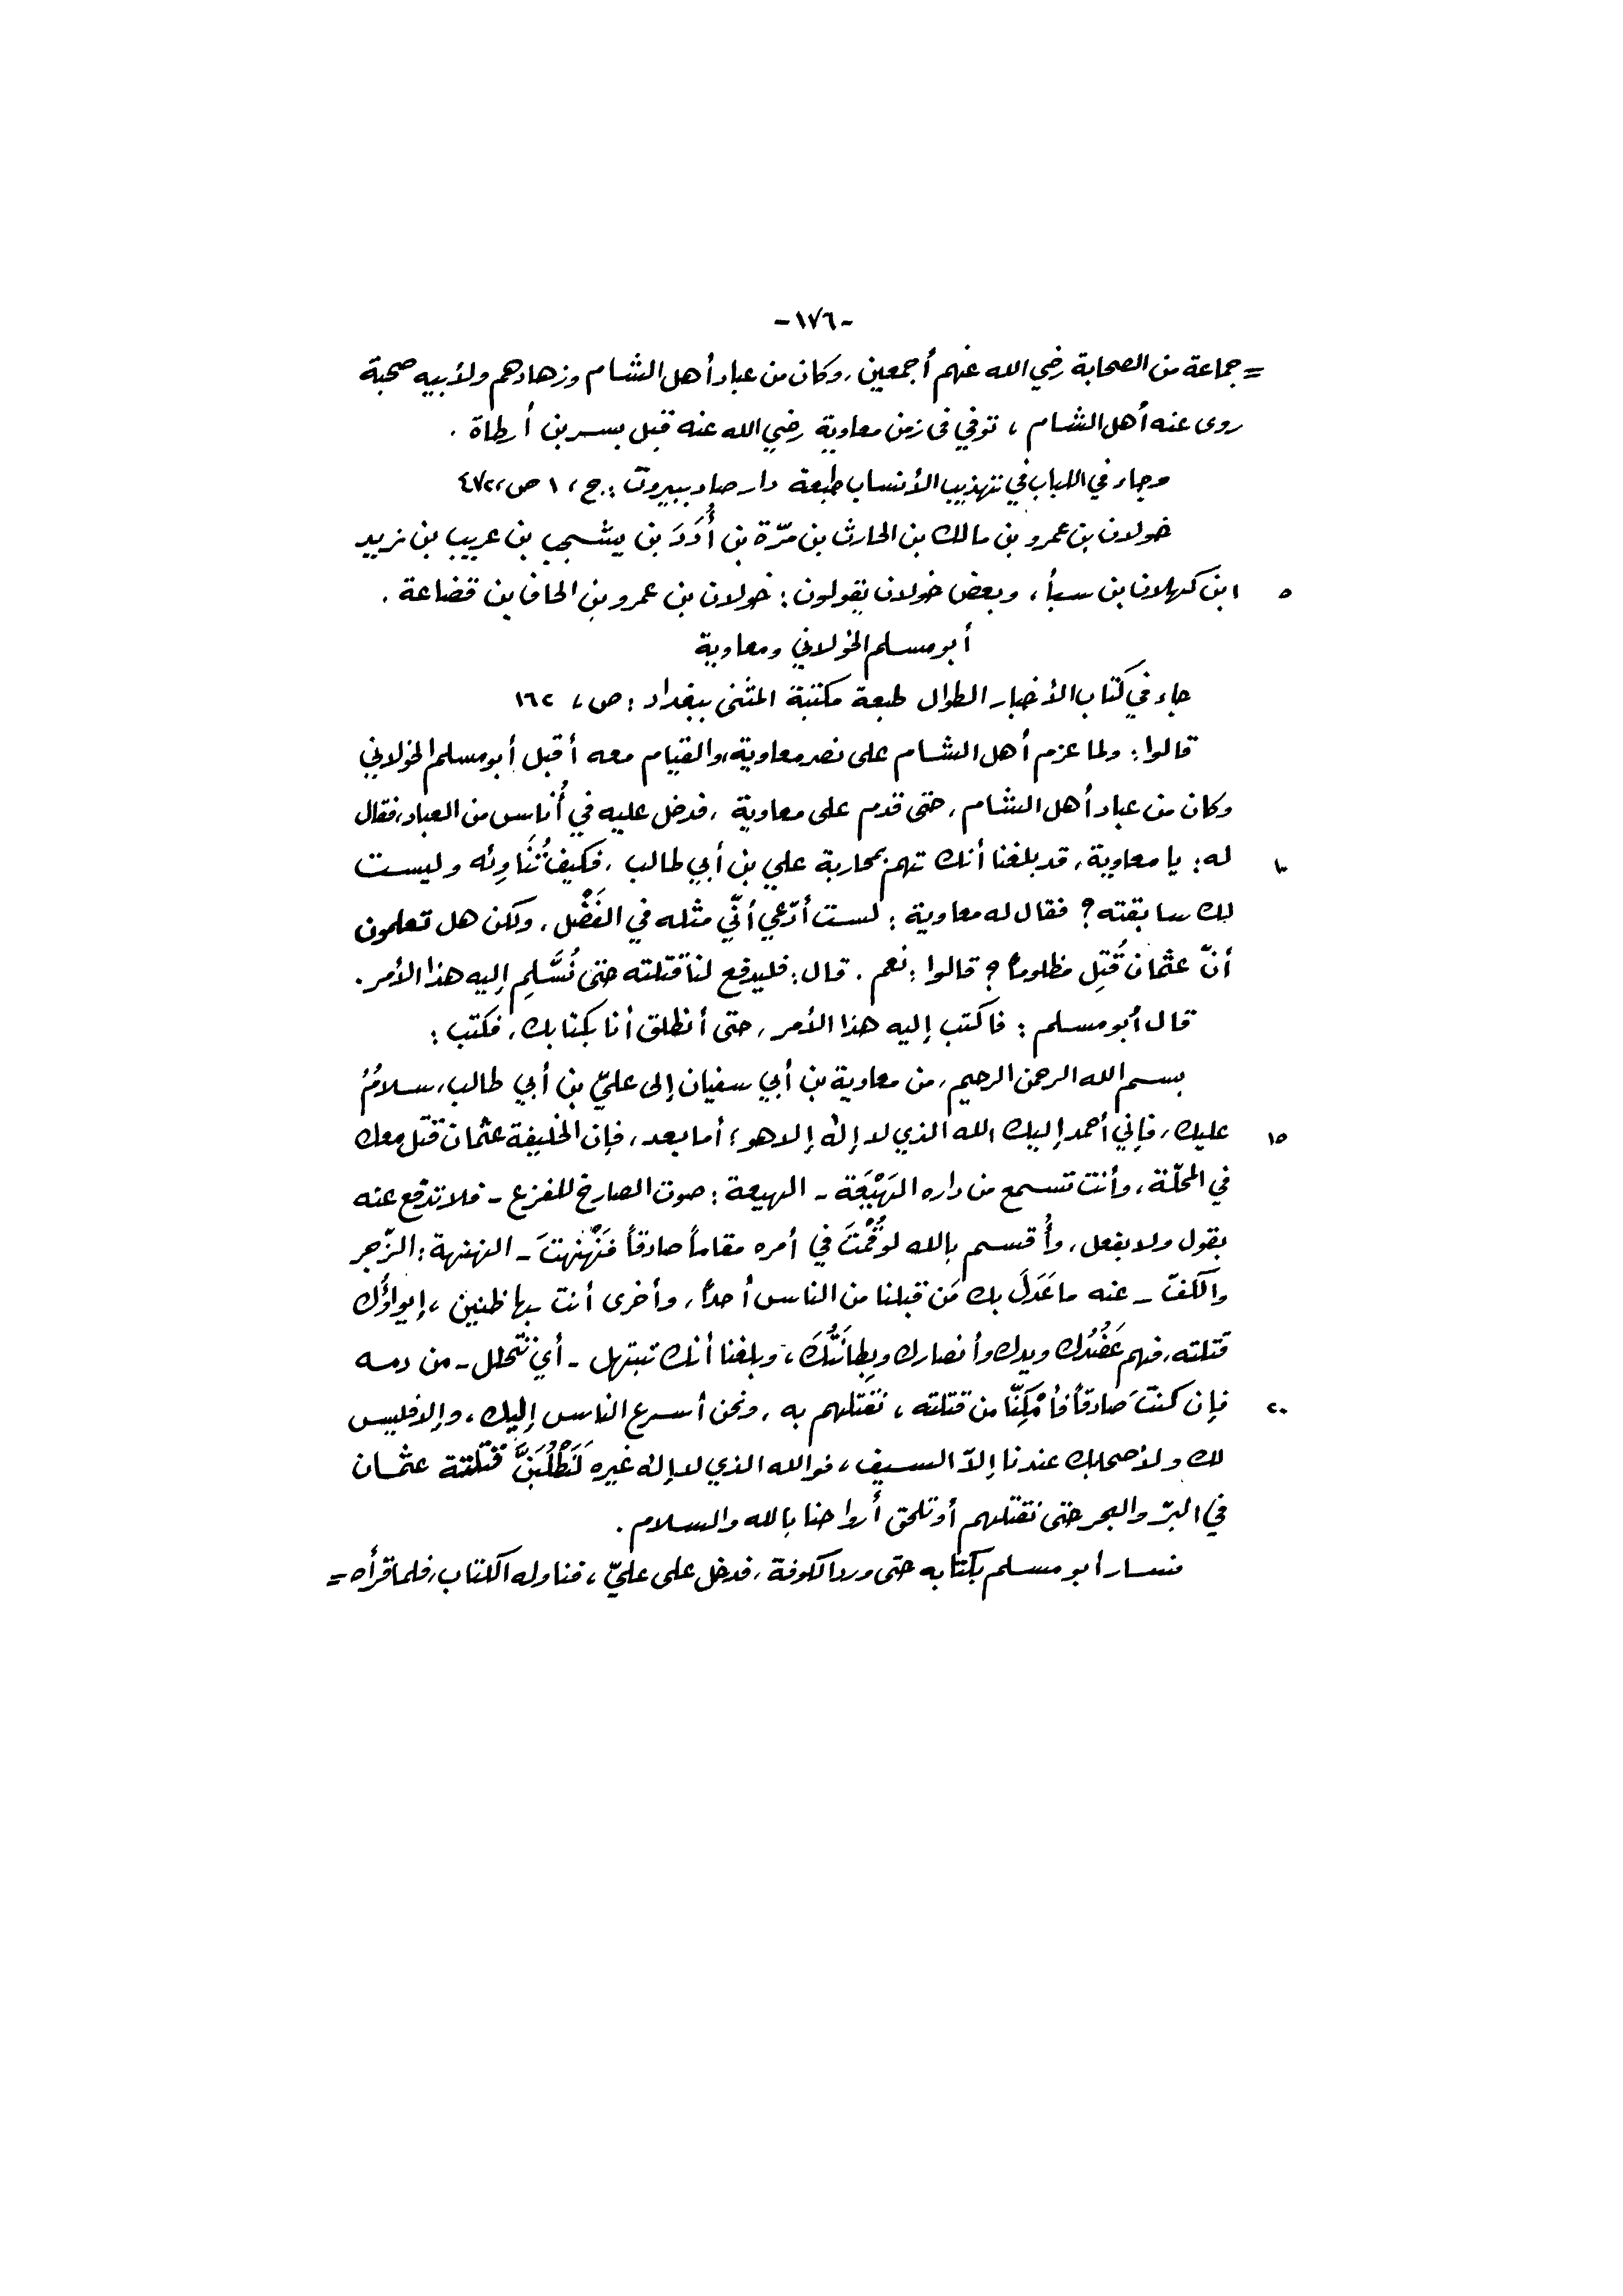 -١٧٦-
= جماعة من الصحابة رضي الله عنهم أجمعين، وكان من عباد أهل الشام وزهادهم ولأبيه صحبة
روى عنه أهل الشام، توفي في زمن معاوية رضي الله عنه قبل بسر بن أرطاة .
وجاء في اللباب في تهذيب الأنساب طبعة دار صادر ببيروت: ج، ١ ص، ٤٧٢
خولان بن عمرو بن مالك بن الحارث بن مرّة بن أُدَدَ بن يشجب بن عريب بن زيد
٥ ابن كهلان بن سبأ، وبعض خولان يقولون: خولان بن عمرو بن الحاف بن قضاعة .
أبو مسلم الخولاني ومعاوية
جاء في كتاب الأخبار الطوال طبعة مكتبة المثنى ببغداد: ص، ١٦٢
قالوا: ولما عزم أهل الشام على نصر معاوية، والقيام معه أقبل أبو مسلم الخولاني
وكان من عباد أهل الشام، حتى قدم على معاوية، فدخل عليه في أُناس من العباد، فقال
١٠ له: يا معاوية، قد بلغنا أنك تهم بمحاربة علي بن أبي طالب، فكيف تُنَاوِئه وليست
لك سابقته؟ فقال له معاوية: لست أدّعي أنّي مثله في الفَضْل، ولكن هل تعلمون
أنّ عثمان قُتِل مظلوماً؟ قالوا: نعم . قال: فليدفع لنا قتلته حتى نُسَلِّم إليه هذا الأمر .
قال أبو مسلم: فاكتب إليه هذا الأمر، حتى أنطلق أنا بكتابك، فكتب:
بسم الله الرحمن الرحيم، من معاوية بن أبي سفيان إلى عليّ بن أبي طالب، سلامٌ
١٥ عليك، فإني أحمد إليك الله الذي لا إله إلا هو؛ أما بعد، فإن الخليفة عثمان قتل معك
في المحلّة، وأنت تسمع من داره الهَيْعَة - الهيعة: صوت الصارخ للفزع - فلا تدفع عنه
بقول ولا بفعل، وأُقسم بالله لو قُمْتَ في أمره مقاماً صادقاً فَنَهْنَهتَ - النهنهة: الزّجر
والكفّ - عنه ما عَدَلَ بك مَن قبلنا من الناس أحداً، وأخرى أنت بها ظنين، إيواؤك
قتلته، فهم عَضُدُك ويدك وأنصارك وبِطانَتُكَ، وبلغنا أنك تبتهل - أي تتحلل - من دمه
٢٠ فإن كنتَ صادقاً فأمْكِنَّا من قتلته، نقتلهم به، ونحن أسرع الناس إليك، وإلا فليس
لك ولأصحابك عندنا إلاّ السيف، فوالله الذي لا إله غيره لَنَطْلُبَنَّ قتلة عثمان
في البرّ والبحر حتى نقتلهم أو تلحق أرواحنا بالله والسلام.
فسار أبو مسلم بكتابه حتى ورد الكوفة، فدخل على عليّ، فناوله الكتاب، فلما قرأه =